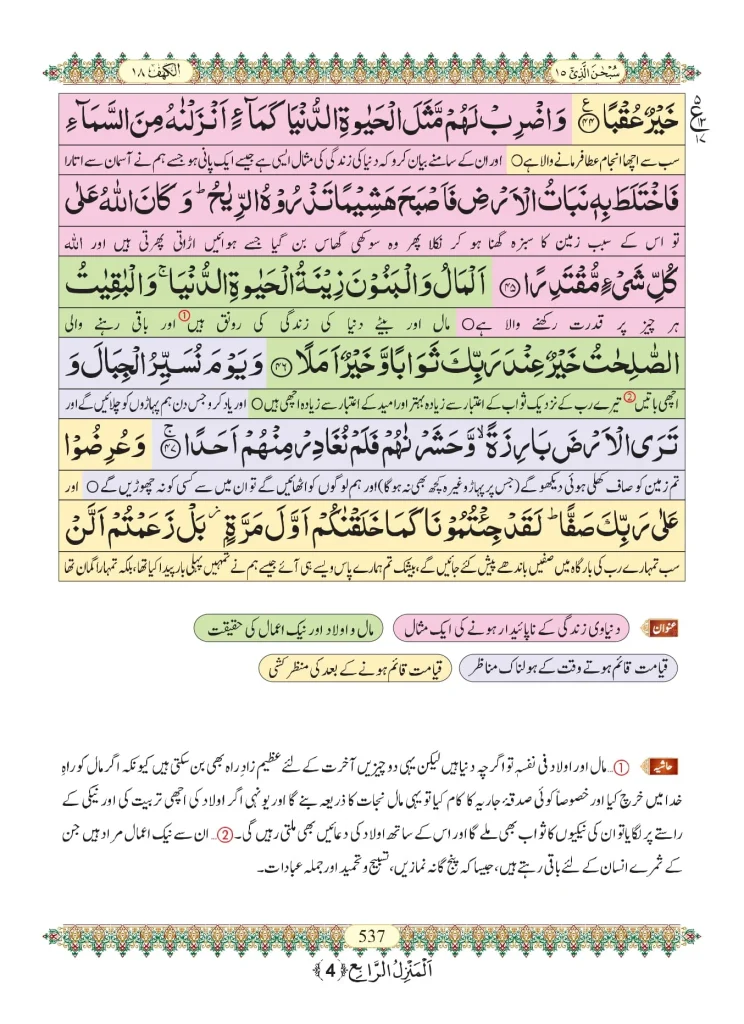 سُبْحٰنَ الَّذِیْۤ ١٥
الکهف ١٨
خَیْرٌ عُقْبًا ﴿۴۴﴾ وَ اضْرِبْ لَهُمْ مَّثَلَ الْحَیٰوةِ الدُّنْیَا كَمَآءٍ اَنْزَلْنٰهُ مِنَ السَّمَآءِ
سب سے اچھا انجام عطا فرمانے والا ہے○ اور ان کے سامنے بیان کرو کہ دنیا کی زندگی کی مثال ایسی ہے جیسے ایک پانی ہو جسے ہم نے آسمان سے اتارا
فَاخْتَلَطَ بِهٖ نَبَاتُ الْاَرْضِ فَاَصْبَحَ هَشِیْمًا تَذْرُوْهُ الرِّیٰحُ ؕ وَ كَانَ اللّٰهُ عَلٰى
تو اس کے سبب زمین کا سبزہ گھنا ہو کر نکلا پھر وہ سوکھی گھاس بن گیا جسے ہوائیں اڑاتی پھرتی ہیں اور اللہ
كُلِّ شَیْءٍ مُّقْتَدِرًا ﴿۴۵﴾ اَلْمَالُ وَ الْبَنُوْنَ زِیْنَةُ الْحَیٰوةِ الدُّنْیَا ۚ وَ الْبٰقِیٰتُ
ہر چیز پر قدرت رکھنے والا ہے○ مال اور بیٹے دنیا کی زندگی کی رونق ہیں① اور باقی رہنے والی
الصّٰلِحٰتُ خَیْرٌ عِنْدَ رَبِّكَ ثَوَابًا وَّ خَیْرٌ اَمَلًا ﴿۴۶﴾ وَ یَوْمَ نُسَیِّرُ الْجِبَالَ وَ
اچھی باتیں② تیرے رب کے نزدیک ثواب کے اعتبار سے زیادہ بہتر اور امید کے اعتبار سے زیادہ اچھی ہیں○ اور یاد کرو جس دن ہم پہاڑوں کو چلائیں گے اور
تَرَى الْاَرْضَ بَارِزَةً ۙ وَّ حَشَرْنٰهُمْ فَلَمْ نُغَادِرْ مِنْهُمْ اَحَدًا ۚ﴿۴۷﴾ وَ عُرِضُوْا
تم زمین کو صاف کھلی ہوئی دیکھو گے (جس پر پہاڑ وغیرہ کچھ بھی نہ ہوگا) اور ہم لوگوں کو اٹھائیں گے تو ان میں سے کسی کو نہ چھوڑیں گے○ اور
عَلٰى رَبِّكَ صَفًّا ؕ لَقَدْ جِئْتُمُوْنَا كَمَا خَلَقْنٰكُمْ اَوَّلَ مَرَّةٍۭ ؗ بَلْ زَعَمْتُمْ اَلَّنْ
سب تمہارے رب کی بارگاہ میں صفیں باندھے پیش کئے جائیں گے، بیشک تم ہمارے پاس ویسے ہی آئے جیسے ہم نے تمہیں پہلی بار پیدا کیا تھا، بلکہ تمہارا گمان تھا
عنوان دنیاوی زندگی کے ناپائیدار ہونے کی ایک مثال مال و اولاد اور نیک اعمال کی حقیقت
قیامت قائم ہوتے وقت کے ہولناک مناظر قیامت قائم ہونے کے بعد کی منظر کشی
حاشیہ ①... مال اور اولاد فی نفسہٖ تو اگرچہ دنیا ہیں لیکن یہی دو چیزیں آخرت کے لئے عظیم زادِ راہ بھی بن سکتی ہیں کیونکہ اگر مال کو راہِ
خدا میں خرچ کیا اور خصوصاً کوئی صدقۂ جاریہ کا کام کیا تو یہی مال نجات کا ذریعہ بنے گا اور یونہی اگر اولاد کی اچھی تربیت کی اور نیکی کے
راستے پر لگایا تو ان کی نیکیوں کا ثواب بھی ملے گا اور اس کے ساتھ اولاد کی دعائیں بھی ملتی رہیں گی۔ ②... ان سے نیک اعمال مراد ہیں جن
کے ثمرے انسان کے لئے باقی رہتے ہیں، جیسا کہ پنج گانہ نمازیں، تسبیح و تحمید اور جملہ عبادات۔
537
اَلْمَنْزِلُ الرَّابِع ﴿4﴾